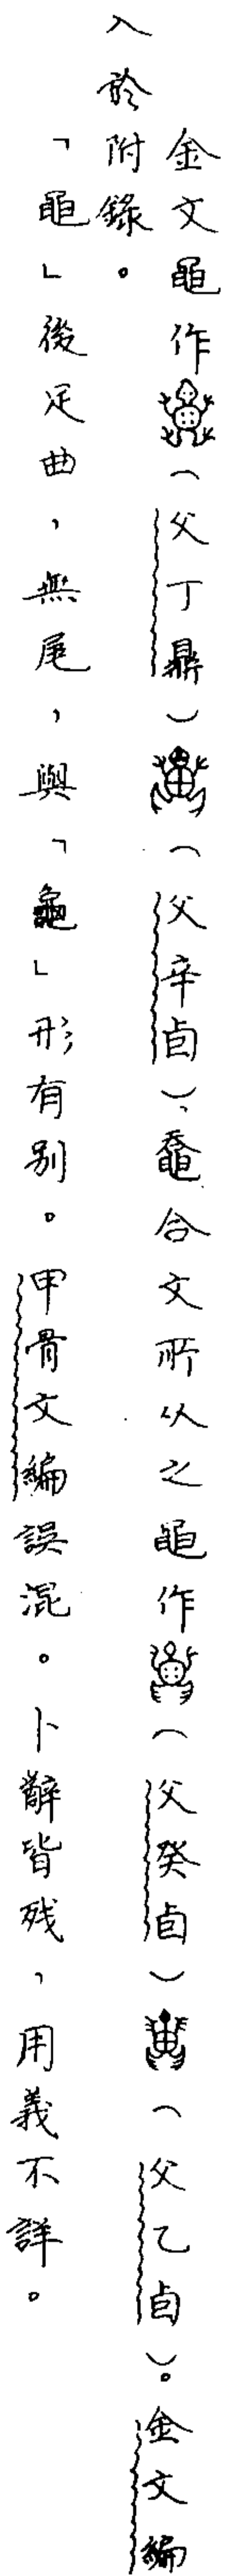 金文黽作（父丁鼎）（父辛卣），鼀合文所从之黽作（父癸卣）（父乙卣）。金文編
入於附錄。
「黽」後足曲，無尾，與「龜」形有別。甲骨文編誤混。卜辭皆残，用義不詳。